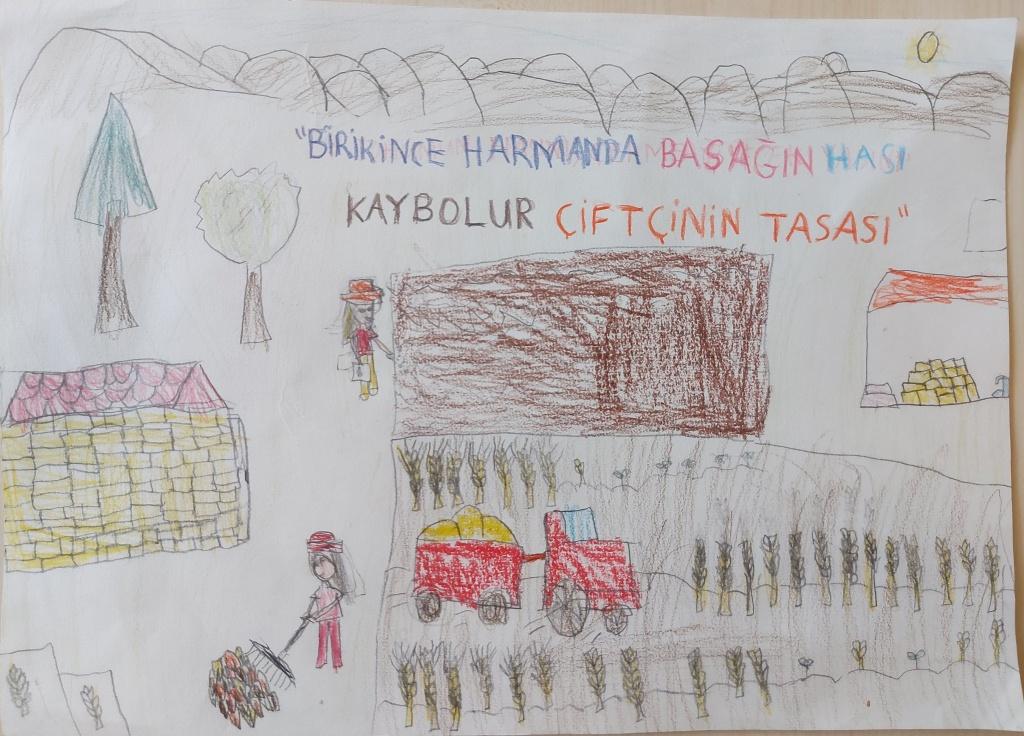 "BİRİKİNCE HARMANDA BAŞAĞIN HASI
KAYBOLUR ÇİFTÇİNİN TASASI"